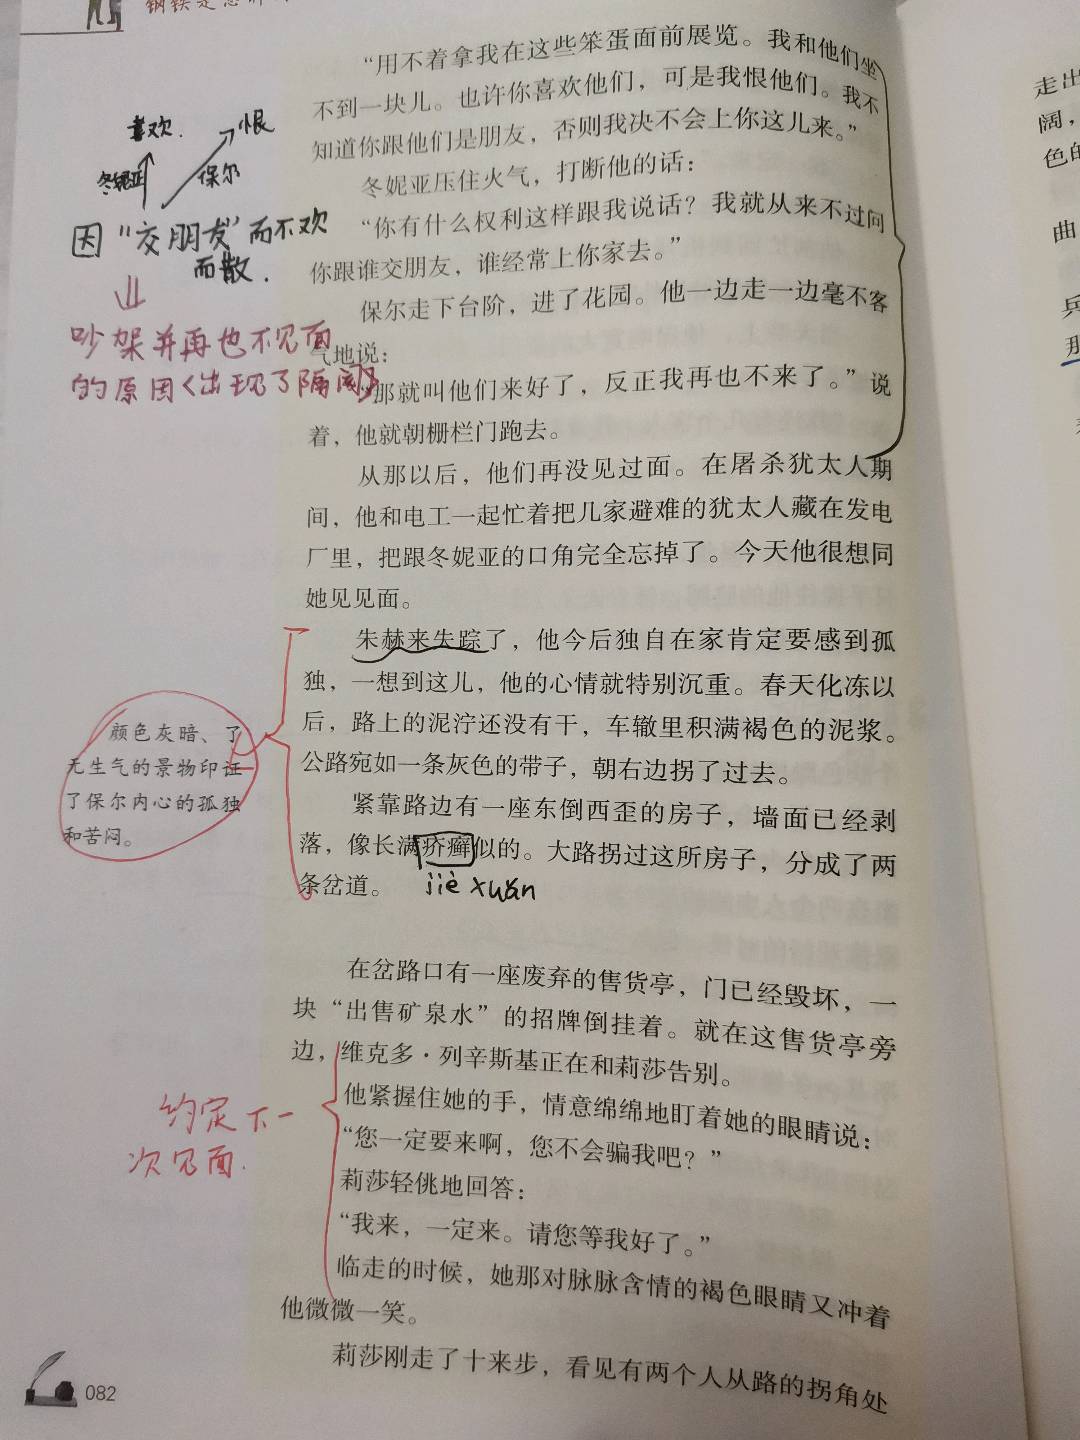 “用不着拿我在这些笨蛋面前展览。我和他们坐
不到一块儿。也许你喜欢他们，可是我恨他们。我不
知道你跟他们是朋友，否则我决不会上你这儿来。”
冬妮亚压住火气，打断他的话：
“你有什么权利这样跟我说话？我就从来不过问
你跟谁交朋友，谁经常上你家去。”
保尔走下台阶，进了花园。他一边走一边毫不客
气地说：
“那就叫他们来好了，反正我再也不来了。”说
着，他就朝栅栏门跑去。
从那以后，他们再没见过面。在屠杀犹太人期
间，他和电工一起忙着把几家避难的犹太人藏在发电
厂里，把跟冬妮亚的口角完全忘掉了。今天他很想同
她见见面。
朱赫来失踪了，他今后独自在家肯定要感到孤
独，一想到这儿，他的心情就特别沉重。春天化冻以
后，路上的泥泞还没有干，车辙里积满褐色的泥浆。
公路宛如一条灰色的带子，朝右边拐了过去。
紧靠路边有一座东倒西歪的房子，墙面已经剥
落，像长满疥癣似的。大路拐过这所房子，分成了两
条岔道。
jiè xuǎn
在岔路口有一座废弃的售货亭，门已经毁坏，一
块“出售矿泉水”的招牌倒挂着。就在这售货亭旁
边，维克多·列辛斯基正在和莉莎告别。
他紧握住她的手，情意绵绵地盯着她的眼睛说：
“您一定要来啊，您不会骗我吧？”
莉莎轻佻地回答：
“我来，一定来。请您等我好了。”
临走的时候，她那对脉脉含情的褐色眼睛又冲着
他微微一笑。
莉莎刚走了十来步，看见有两个人从路的拐角处
喜欢.
恨
冬妮亚
保尔
因“交朋友”而不欢
而散.
吵架并再也不见面
的原因<出现了隔阂>
颜色灰暗、了
无生气的景物印证
了保尔内心的孤独
和苦闷。
约定下一
次见面.
082
走出
阔，
色的
曲
兵